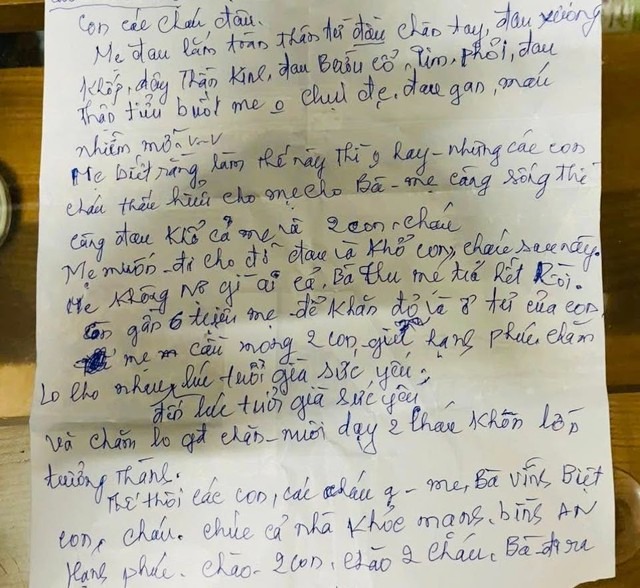 con các cháu đâu.
Mẹ đau lắm toàn thân từ đầu chân tay, đau xương
khớp, dây thần kinh, đau bướu cổ, tim, phổi, đau
thận tiểu buốt mẹ o chịu đc, đau gan, máu
nhiễm mỡ v-v
Mẹ biết rằng làm thế này thì o hay - nhưng các con
cháu thấu hiểu cho mẹ cho Bà - mẹ càng sống thì
càng đau khổ cả mẹ và 2 con, cháu
Mẹ muốn - đi cho đỡ đau và khổ con, cháu sau này.
Mẹ không nợ gì ai cả, Bà Thu mẹ trả hết rồi.
còn gần 6 triệu mẹ - để khăn đỏ và ở tủ của con
mẹ cầu mong 2 con giữ hạnh phúc chăm
lo cho nhau lúc tuổi già sức yếu.
đến lúc tuổi già sức yếu
Và chăm lo gđ chăn - nuôi dạy 2 cháu khôn lớn
trưởng thành.
Thế thôi các con, các cháu - mẹ, Bà vĩnh Biệt
con, cháu. chúc cả nhà khỏe mạnh. bình AN
Hạnh phúc. chào - 2 con, chào 2 cháu. Bà đi ra